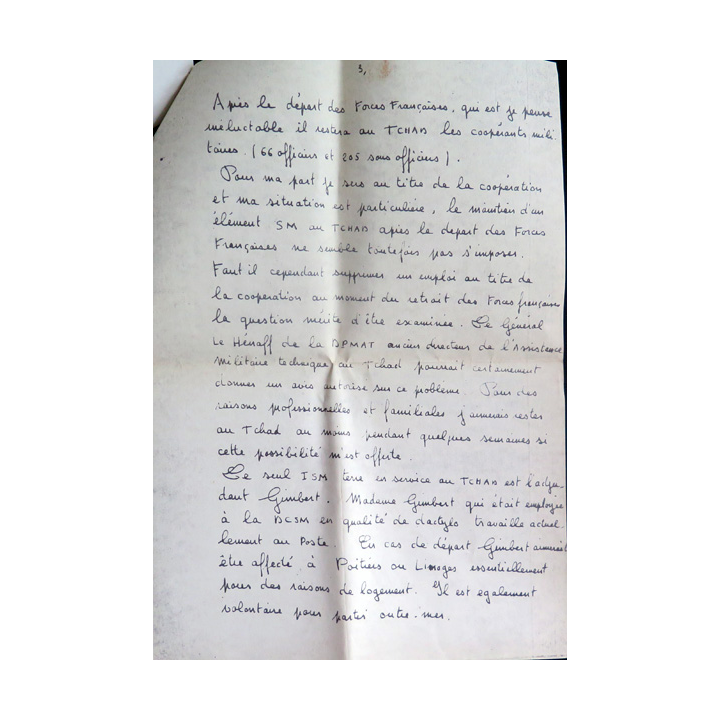 3,
Après le départ des Forces Françaises, qui est je pense
inéluctable il restera au TCHAD les coopérants mili-
taires. (66 officiers et 205 sous officiers).
Pour ma part je sers au titre de la coopération
et ma situation est particulière, le maintien d'un
élément SM au TCHAD après le départ des Forces
Françaises ne semble toutefois pas s'imposer.
Faut il cependant supprimer un emploi au titre de
la coopération au moment du retrait des Forces françaises
la question mérite d'être examinée. Le Général
LE Hénaff de la DPMAT ancien directeur de l'Assistance
militaire technique au Tchad pourrait certainement
donner un avis autorisé sur ce problème. Pour des
raisons professionnelles et familiales j'aimerais rester
au Tchad au moins pendant quelques semaines si
cette possibilité m'est offerte.
Le seul ISM terre en service au TCHAD est l'adju-
dant Gimbert. Madame Gimbert qui était employée
à la DCSM en qualité de dactylo travaille actuel-
lement au Poste. En cas de départ Gimbert aimerait
être affecté à Poitiers ou Limoges essentiellement
pour des raisons de logement. Il est egalement
volontaire pour partir outre-mer.